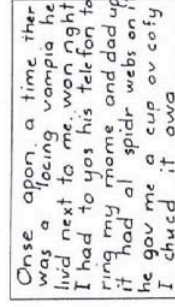 Onse apon a time ther
was a locing vampia he
livd next to me. won night
I had to yos his telefon to
ring my mome and dad up
it had al spidr webs on i
he gav me a cup ov cofy
I chucd it awa